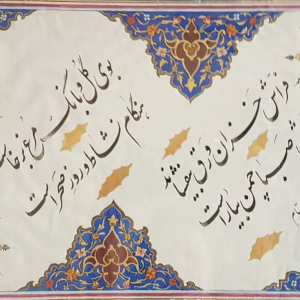 بوی گل و بانگ مرغ برخاست
هنگام نشاط و روز صحراست
فراش خزان ورق بیفشاند
صبا چمن بیاراست